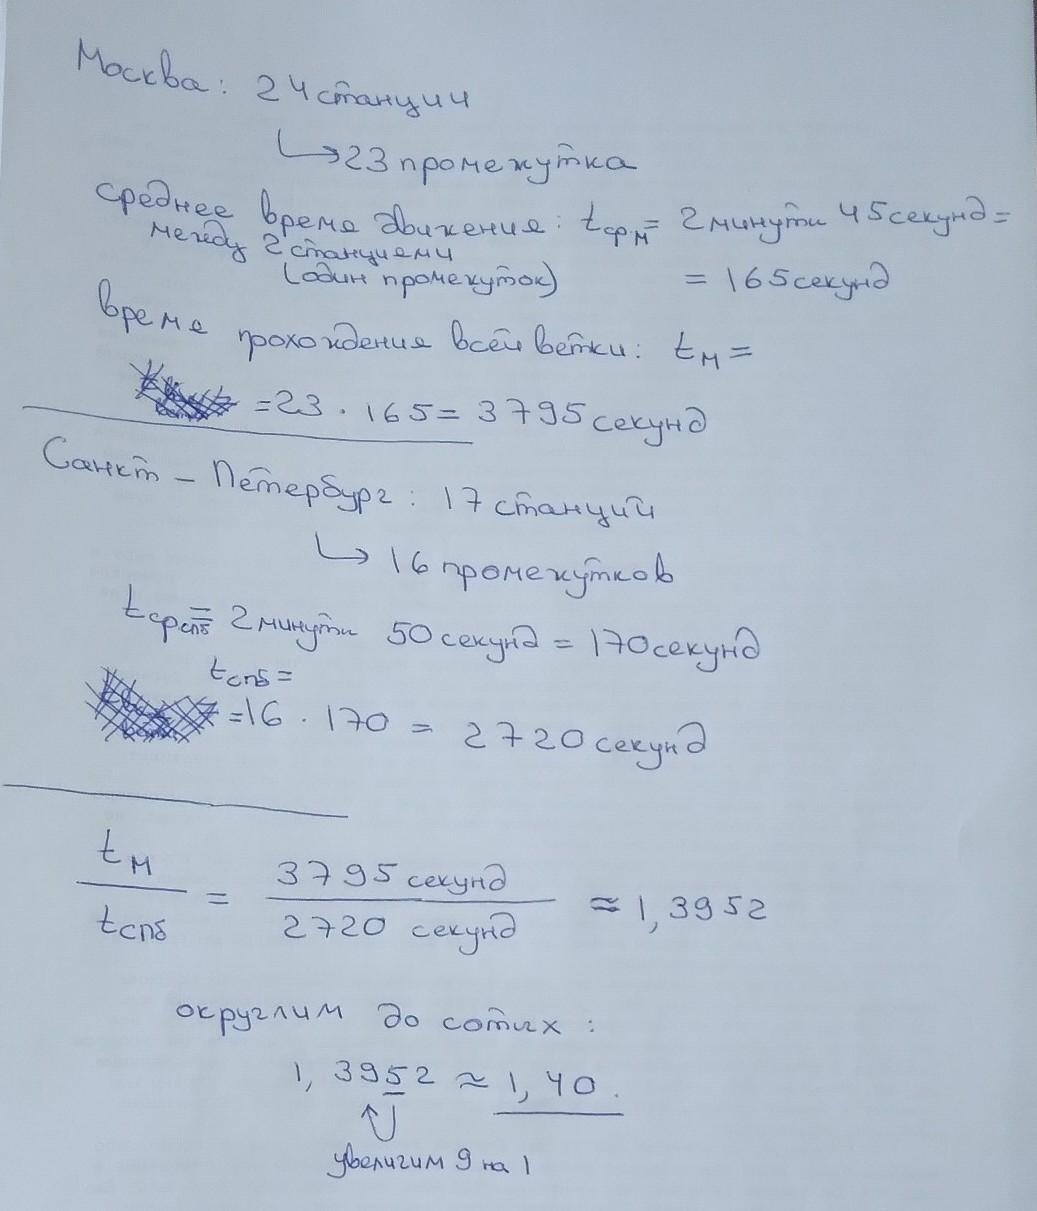 Москва: 24 станции
↳ 23 промежутка
среднее время движения: tср м = 2 минуты 45 секунд =
между 2 станциями
(один промежуток) = 165 секунд
время прохождения всей ветки: tм =
= 23 · 165 = 3795 секунд
Санкт – Петербург: 17 станций
↳ 16 промежутков
tср спб = 2 минуты 50 секунд = 170 секунд
tспб =
= 16 · 170 = 2720 секунд
tм / tспб = 3795 секунд / 2720 секунд ≈ 1,3952
округлим до сотых:
1,3952 ≈ 1,40.
увеличим 9 на 1